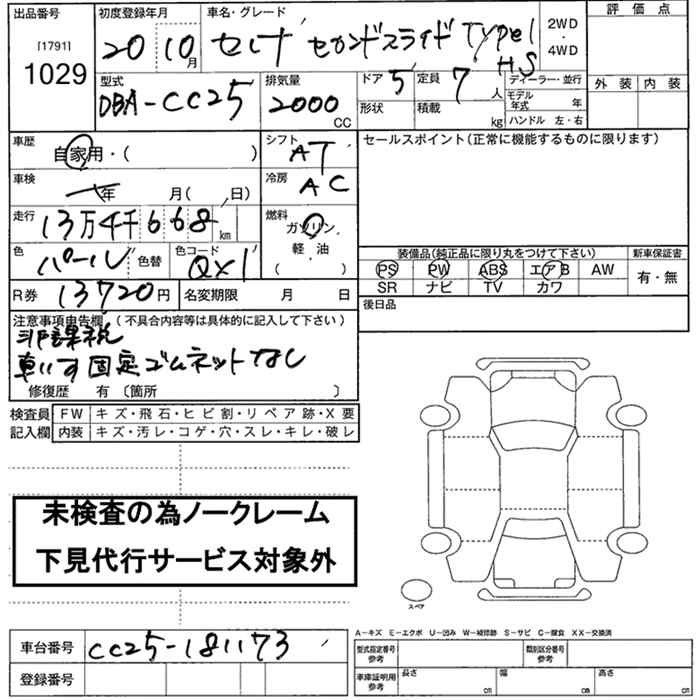 出品番号 初度登録年月 車名・グレード 2WD 評価点
[1791] 1029 20 10月 セレナ セカンドスライド TYPE1 HS ・4WD
型式 排気量 ドア 5 定員 7人 ディーラー・並行 外装 内装
DBA-CC25 2000CC 形状 積載 kg モデル年式 年
ハンドル 左・右
車歴 自家用・( ) シフト AT セールスポイント(正常に機能するものに限ります)
車検 年 月( 、日) 冷房 AC
走行 13万4千668km 燃料 ガソリン・
軽・油
( )
色 パール 色替 色コード QX1 装備品(純正品に限り丸をつけて下さい) 新車保証書
PS PW ABS エアB AW 有・無
SR ナビ TV カワ
R券 13720円 名変期限 月 日 後日品
注意事項申告欄 (不具合内容等は具体的に記入して下さい)
非課税
車いす固定ゴムネットなし
修復歴 有 〔箇所 〕
検査員 FW キズ・飛石・ヒビ割・リペア跡・X要
記入欄 内装 キズ・汚レ・コゲ・穴・スレ・キレ・破レ
未検査の為ノークレーム
下見代行サービス対象外
スペア
A-キズ E-エクボ U-凹み W-補修跡 S-サビ C-腐食 XX-交換済
車台番号 CC25-181173 型式指定番号 参考 類別区分番号 参考
登録番号 車庫証明用 参考 長さ cm 幅 cm 高さ cm